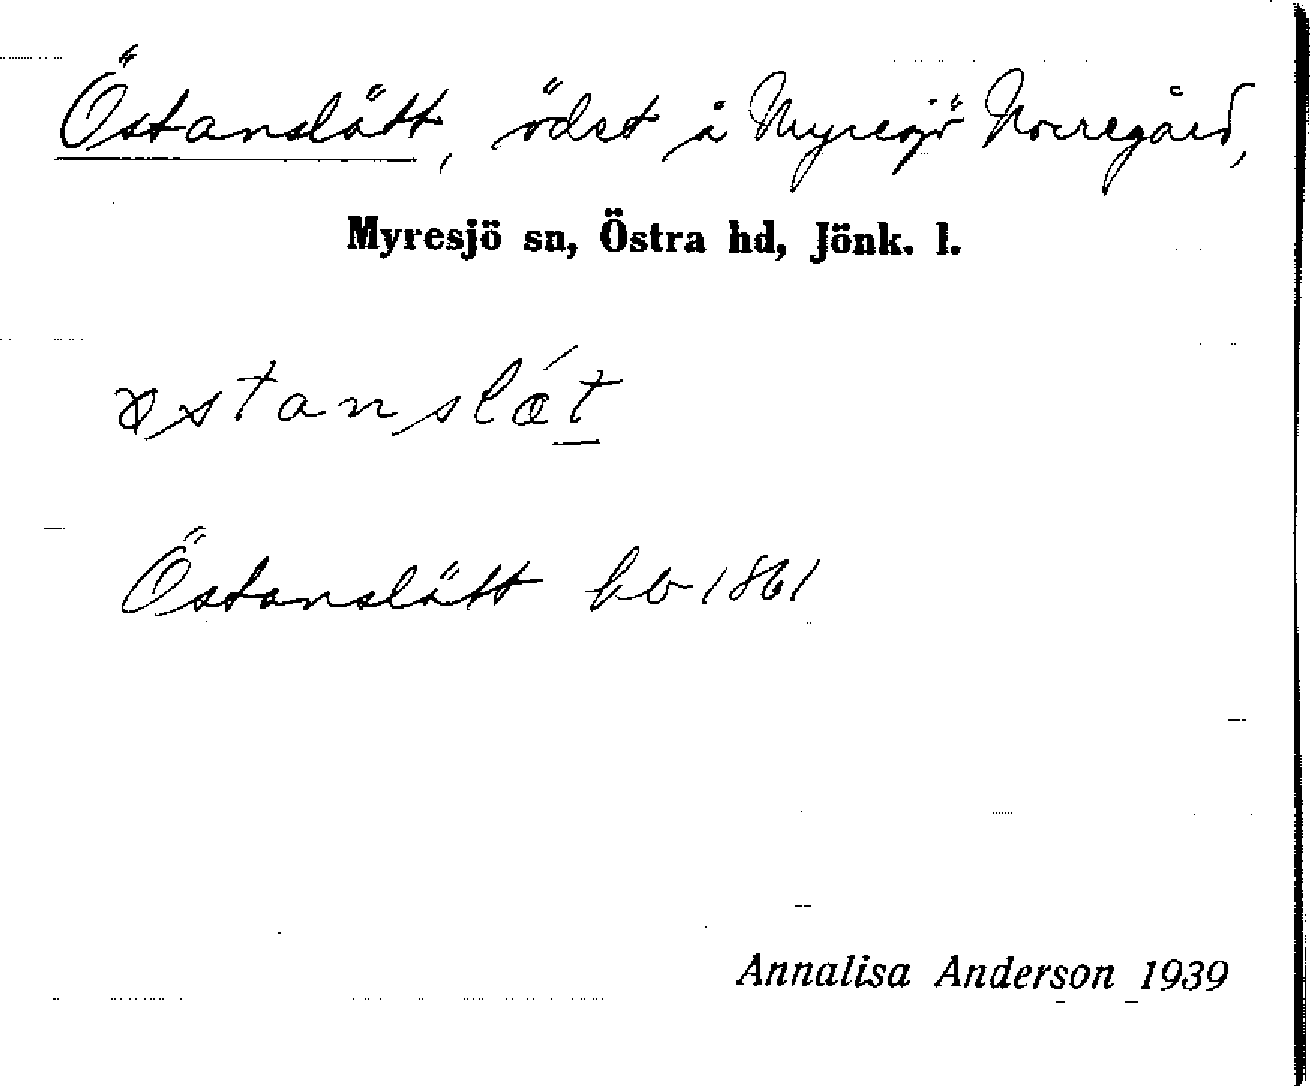 Östanslätt, ödst å Myresjö Norregård,
Myresjö sn, Östra hd, Jönk. l.
östanslǽt
Östanslätt hb 1861
Annalisa Anderson 1939